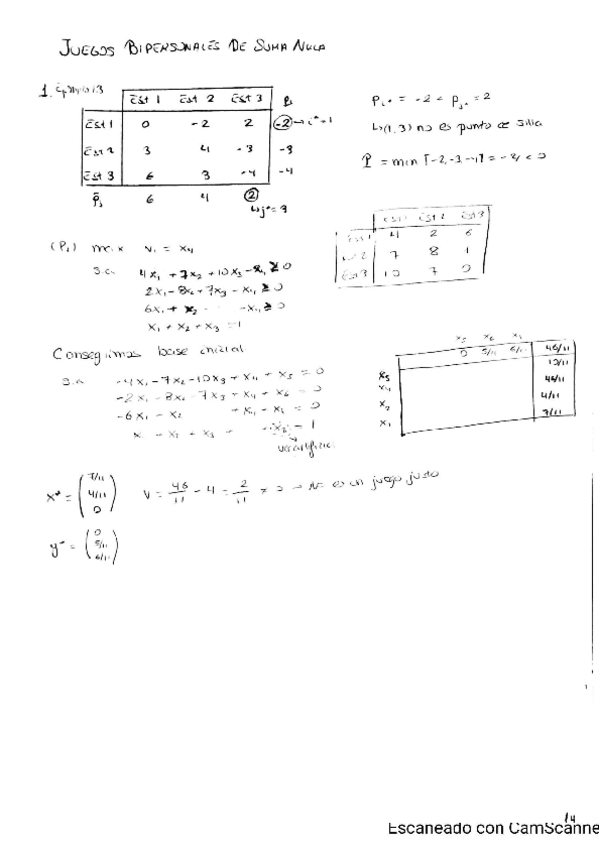 JUEGOS BIPERSONALES DE SUMA NULA
1. Ejercicio 3
Est 1 Est 2 Est 3 Pi
Est 1 0 -2 2 -2 → i* = 1
Est 2 3 4 -3 -3
Est 3 6 3 -4 -4
Pj 6 4 2
↳ j* = 3
Pi* = -2 < Pj* = 2
↳ (1,3) no es punto de silla
P = min {-2,-3,-4} = -4 < 0
Est 1 Est 2 Est 3
Est 1 4 2 6
Est 2 7 8 1
Est 3 10 7 0
(P1) max V1 = x4
s.a. 4x1 + 7x2 + 10x3 - x4 ≥ 0
2x1 - 8x2 + 7x3 - x4 ≥ 0
6x1 + x2 - x4 ≥ 0
x1 + x2 + x3 = 1
Conseguimos base inicial
s.a -4x1 - 7x2 - 10x3 + x4 + x5 = 0
-2x1 - 8x2 - 7x3 + x4 + x6 = 0
-6x1 - x2 + x4 - x7 = 0
= 1
x5 x6 x7
0 5/11 6/11 46/11
x5
x4 46/11
x2 4/11
x1 7/11
x* = (7/11 4/11 0) V = 46/11 - 4 = 2/11 ≠ 0 → No es un juego justo
y* = (0 5/11 6/11)
1/4
Escaneado con CamScanne